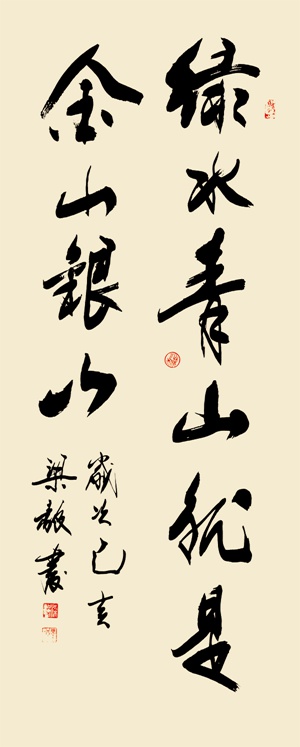 绿水青山就是
金山银山
歲次己亥
梁毅書